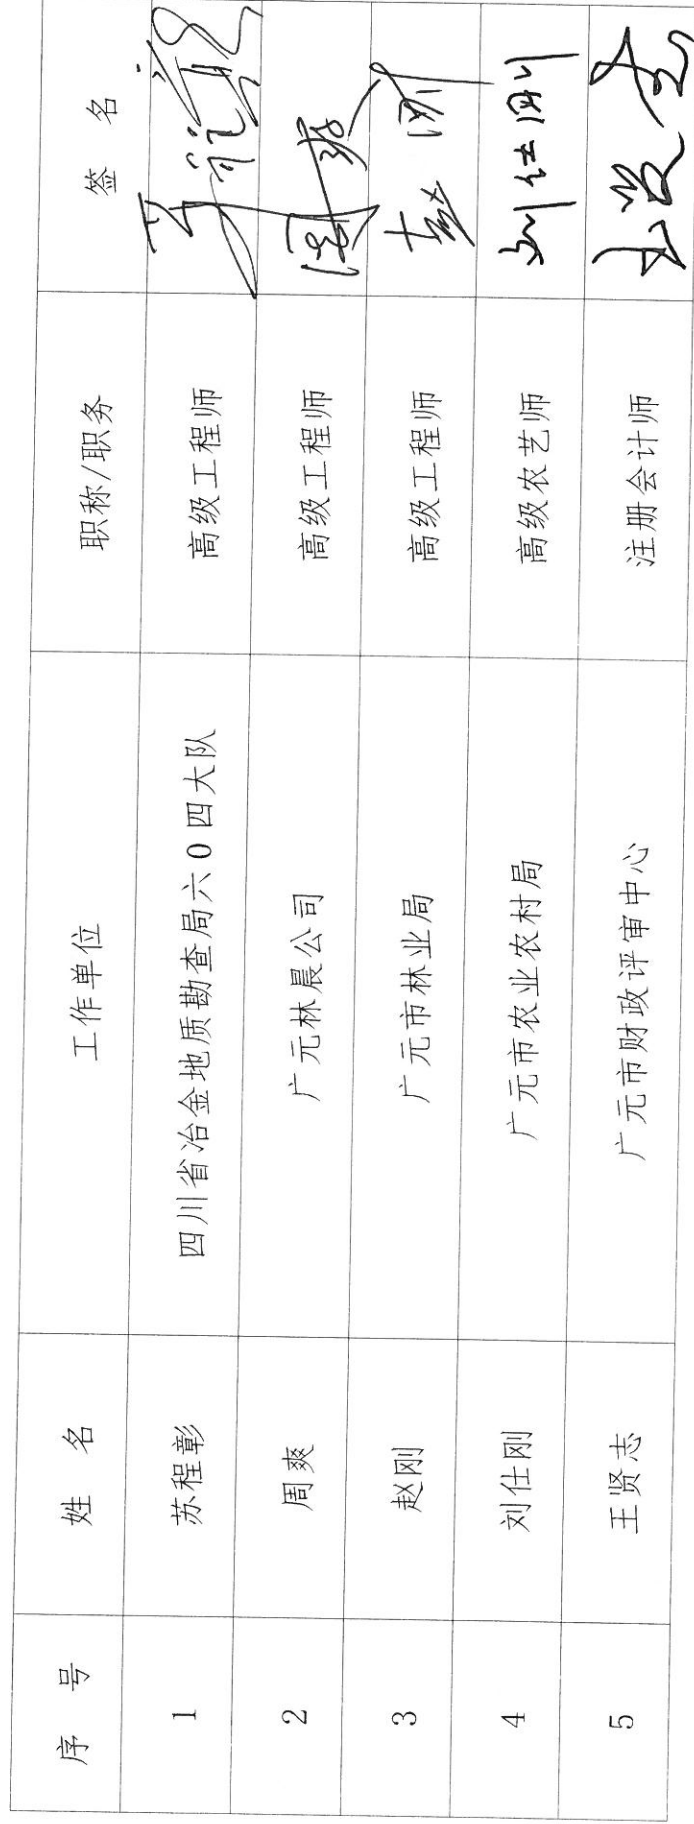 序号 姓名 工作单位 职称/职务 签名
1 苏程彰 四川省冶金地质勘查局六0四大队 高级工程师
2 周爽 广元林晨公司 高级工程师 周爽
3 赵刚 广元市林业局 高级工程师 赵刚
4 刘仕刚 广元市农业农村局 高级农艺师 刘仕刚
5 王贤志 广元市财政评审中心 注册会计师 王贤志